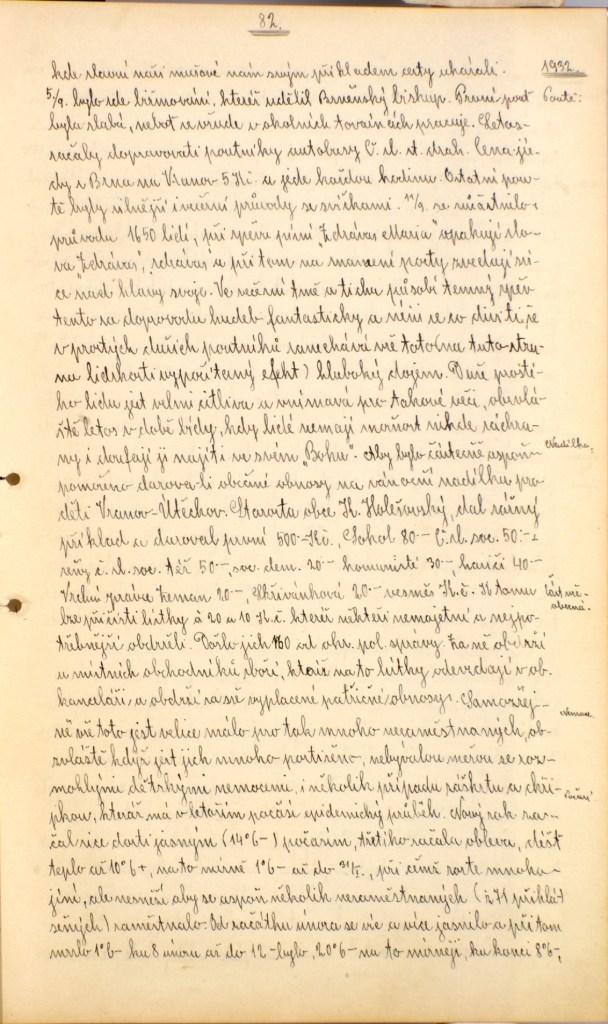 82.
1932.
kde slavní naši mužové nám svým příkladem cesty ukázali.
5/9. bylo zde biřmování, kteréž udělil Brněnský biskup. První pouť
Poutě:
byla slabá, neboť se všude v okolních továrnách pracuje. Letos
začaly dopravovati poutníky autobusy Č. sl. st. drah. Cena jíz-
dy z Brna na Vranov 5 Kč. a jede každou hodinu. Ostatní pou-
tě byly silnější i večerní průvody se svíčkami. 11/9. se zúčastnilo
průvodu 1650 lidí, při zpěvu písní „Zdrávas Maria" opakují slo-
va „Zdrávas, zdrávas" a při tom na znamení pocty zvedají sví-
ce nad hlavy svoje. Ve večerní tmě a tichu působí temný zpěv
tento za doprovodu hudeb fantasticky a není se co diviti, že
v prostých duších poutníků zanechává vše toto (na tuto stru-
nu lidskosti vypočítaný efekt) hluboký dojem. Duše prosté-
ho lidu jest velmi citlivá a vnímavá pro takové věci, obzvlá-
ště letos v době bídy, kdy lidé nemají možnost nikde záchra-
ny i doufají ji najíti ve svém „Bohu". Aby bylo částečně aspoň
Nadílka:
pomoženo darova-li občané obnosy na vánoční nadílku pro
děti Vranov-Útěchov. Starosta obce H. Holešovský, dal vzácný
příklad a daroval první 500.- Kč., Sokol 80.- Č. sl. soc. 50.-
ženy č. sl. soc. též 50.-, soc. dem. 20.- komunisté 30.-, hasiči 40.-
Vrchní správce Zeman 20.-, Skřivánková 20.- vesměs K.č. K tomu
lze přičísti lístky à 20 a 10 K.č. kteréž někteří nemajetní a nejpo-
třebnější obdrželi. Došlo jich 160 od okr. pol. správy. Za ně obdrží
u místních obchodníků zboží, kteříž na to lístky odevzdají v ob.
kanceláři a obdrží za ně vyplacené patřičné obnosy. Samozřej-
mě vše toto jest velice málo pro tak mnoho nezaměstnaných, ob-
Nemoce.
zvláště když jest jich mnoho postiženo, nebývalou měrou se roz-
mohlými dětskými nemocemi, i několik případů záškrtu a chři-
Počasí
pkou, kteráž má v letošním počasí epidemický průběh. Nový rok za-
čal sice dosti jasným (14°C-) počasím, třetího začala obleva, déšť
teplo až 10°C+, na to mírně 1°C- až do 31/I., při čemž roste mnoho
jiní, ale nesněží aby se aspoň několik nezaměstnaných (z 71 přihlá-
šených) zaměstnalo. Od začátku února se víc a více jasnilo a při tom
mrzlo 1°C- ku 8 únoru až do 12- bylo, 20°C- na to mírněji, ku konci 8°C-,